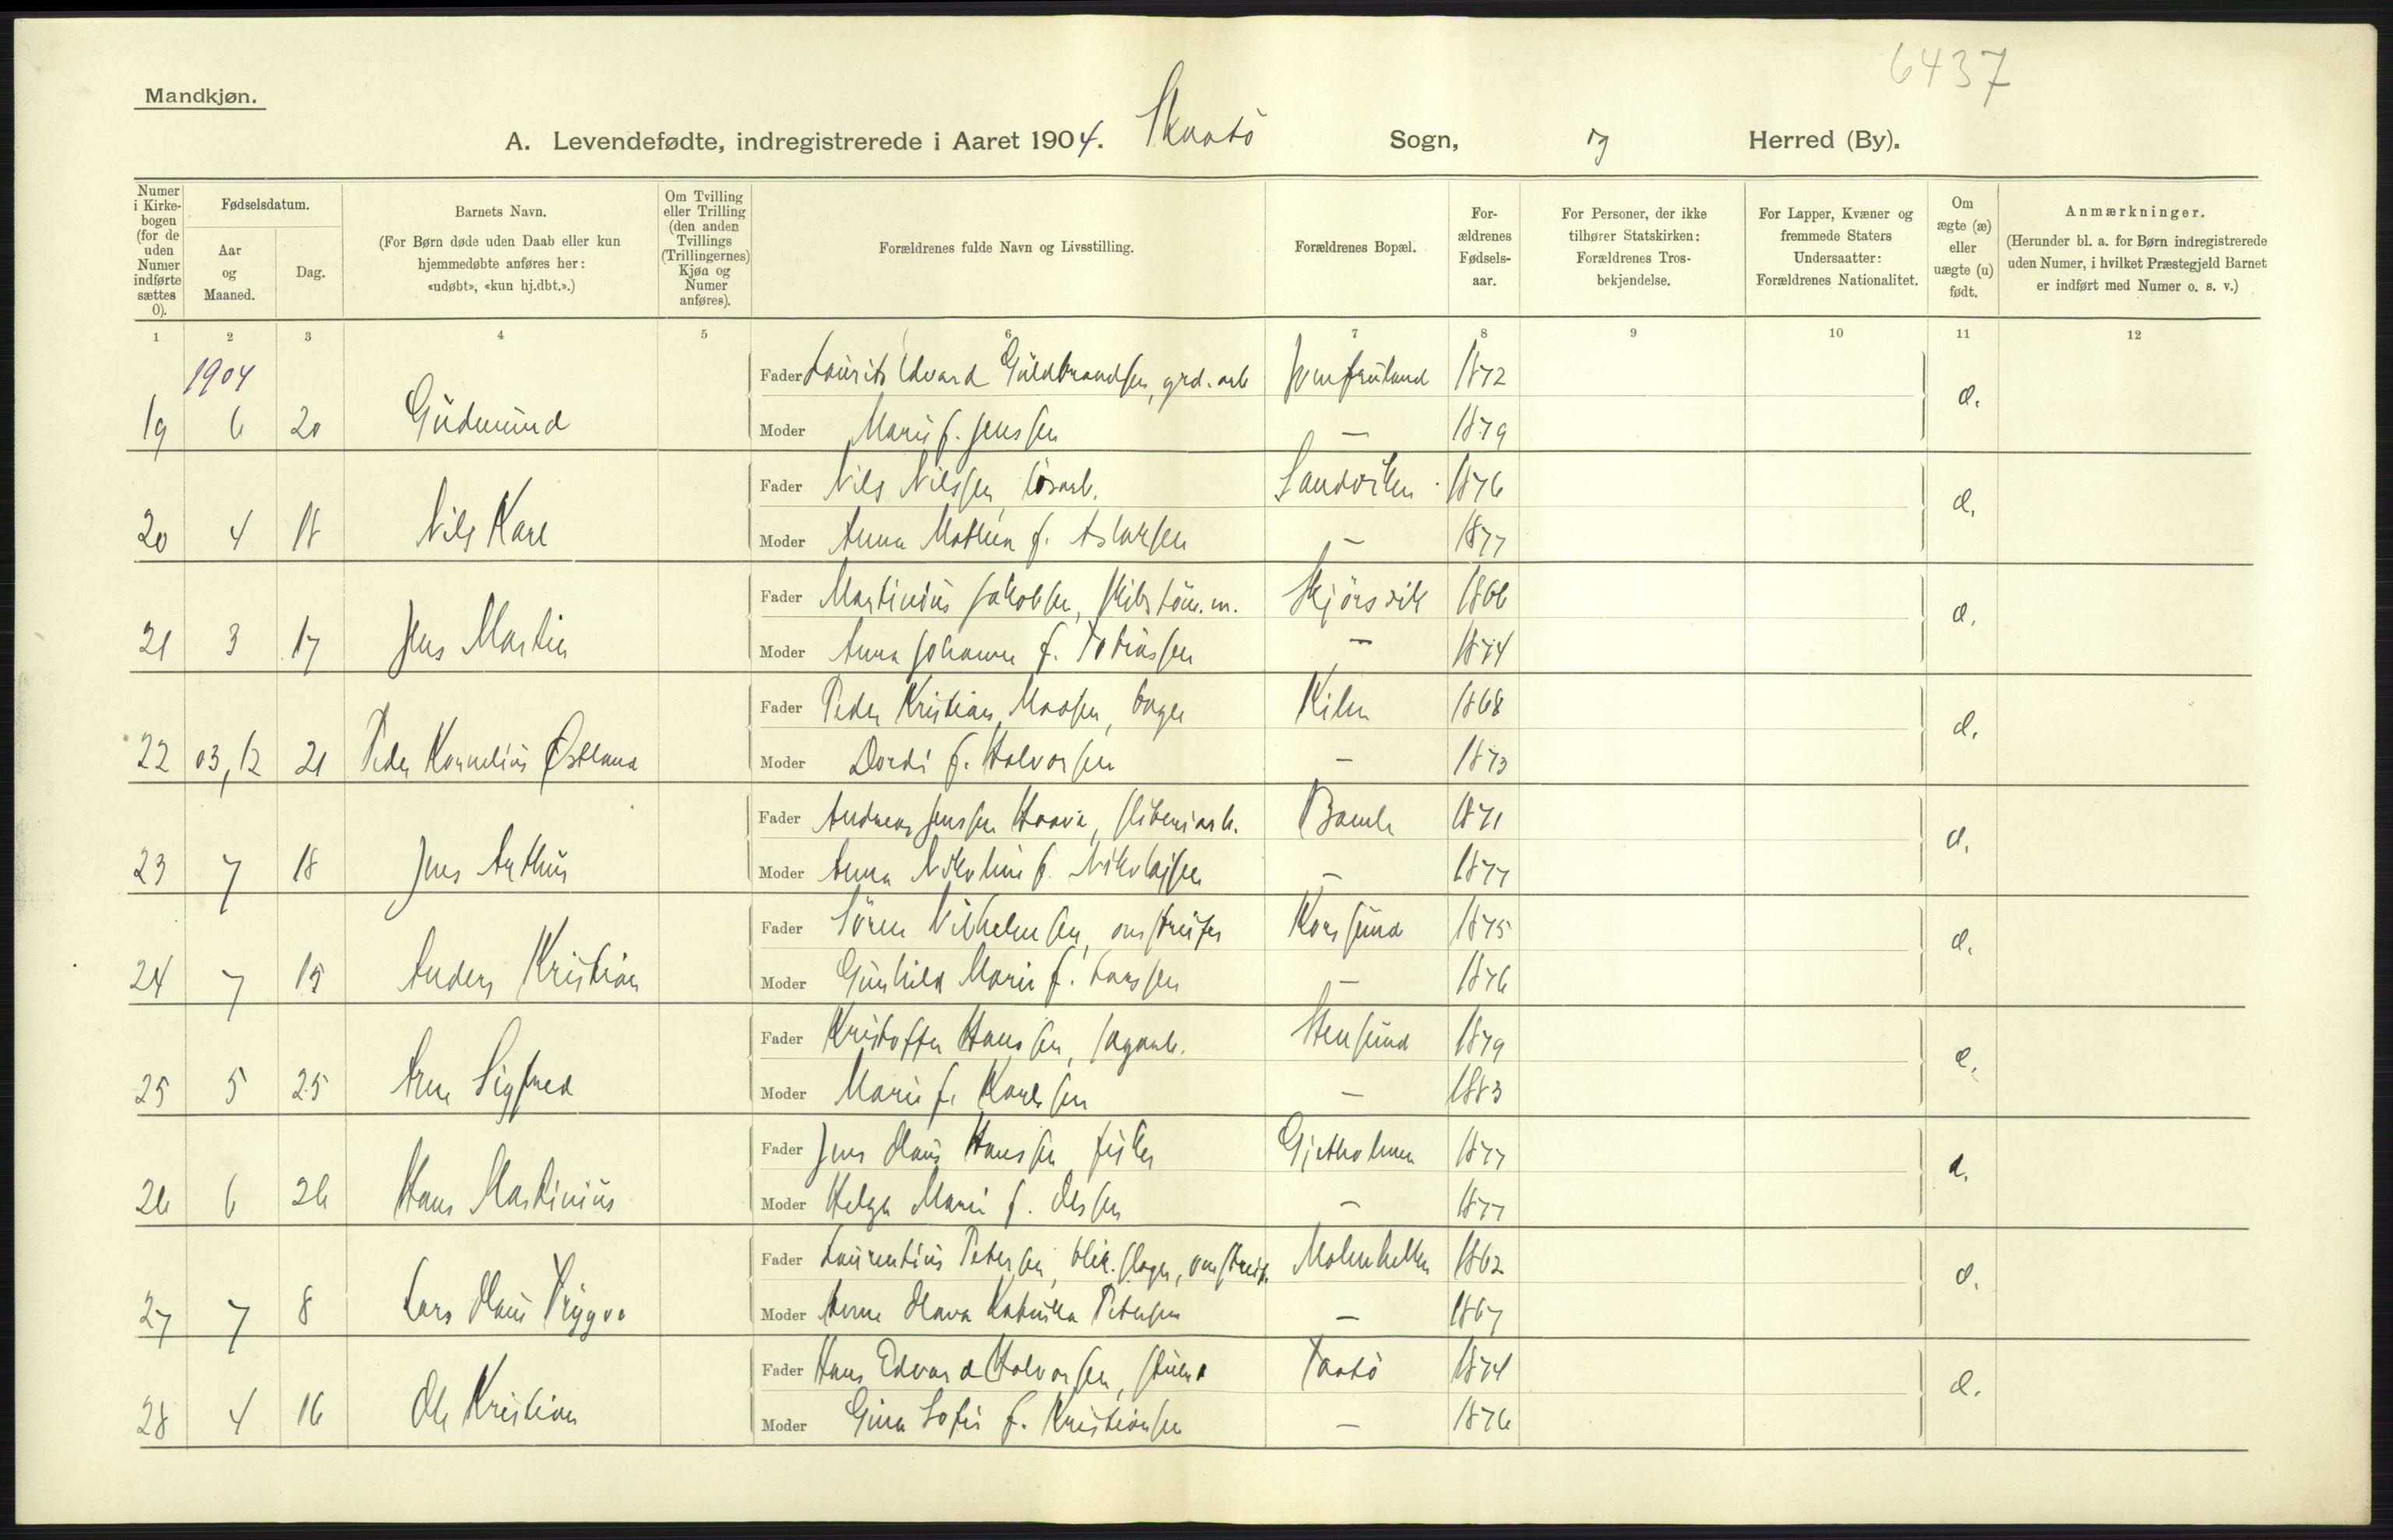 6437
Mandkjøn.
A. Levendefødte, indregistrerede i Aaret 1904. Skaatö Sogn, og Herred (By).
Numer i Kirkebogen (for de uden Numer indførte sættes 0).
Fødselsdatum.
Aar og Maaned.
Dag.
Barnets Navn.
(For Børn døde uden Daab eller kun hjemmedøbte anføres her: «udøbt», «kun hj.dbt.».)
Om Tvilling eller Trilling (den anden Tvillings (Trillingernes) Kjøn og Numer anføres).
Forældrenes fulde Navn og Livsstilling.
Forældrenes Bopæl.
For-ældrenes Fødsels-aar.
For Personer, der ikke tilhører Statskirken: Forældrenes Tros-bekjendelse.
For Lapper, Kvæner og fremmede Staters Undersaatter: Forældrenes Nationalitet.
Om ægte (æ) eller uægte (u) født.
Anmærkninger.
(Herunder bl. a. for Børn indregistrerede uden Numer, i hvilket Præstegjeld Barnet er indført med Numer o. s. v.)
1 2 3 4 5 6 7 8 9 10 11 12
1904
Fader Laurits Edvard Guldbrandsen, grd. arb Jomfruland 1872
19 6 20 Gudmund æ.
Moder Marie f. Jenssen — 1879
Fader Nils Nilssen, lösarb. Sandviken 1876
20 4 18 Nils Karl æ.
Moder Anna Mathea f. Aslaksen — 1877
Fader Martinius Jakobsen, skibstöm.m. Skjörsvik 1866
21 3 17 Jens Martin æ.
Moder Anna Johanne f. Tobiassen — 1874
Fader Peder Kristian Moosen, bager Kilen 1868
22 03,12 21 Peder Kornelius Østland æ.
Moder Dordi f. Halvorsen — 1873
Fader Andreas Jenssen Haavi, sliberiarb. Bamle 1871
23 7 18 Jens Arthur æ.
Moder Anna Nikoline f. Nikolajsen — 1877
Fader Sören Vilhelmsen, omstreifer Korssund 1875
24 7 15 Anders Kristian æ.
Moder Gunhild Marie f. Larssen — 1876
Fader Kristoffer Hanssen, sagarb. Stensund 1879
25 5 25 Arne Sigfred æ.
Moder Marie f. Karlsen — 1883
Fader Jens Olaus Hanssen fisker Gjetholmen 1877
26 6 26 Hans Martinius æ.
Moder Helga Marie f. Olssen — 1877
Fader Laurentius Petersen, blik.slager, omstreif. Molmhelken 1862
27 7 8 Lars Olaus Trygve æ.
Moder Anne Olava Katinka Petersen — 1867
Fader Hans Edvard Halvorsen, Taatö 1874
28 4 16 Ole Kristian æ.
Moder Gina Sofie f. Kristiansen — 1876